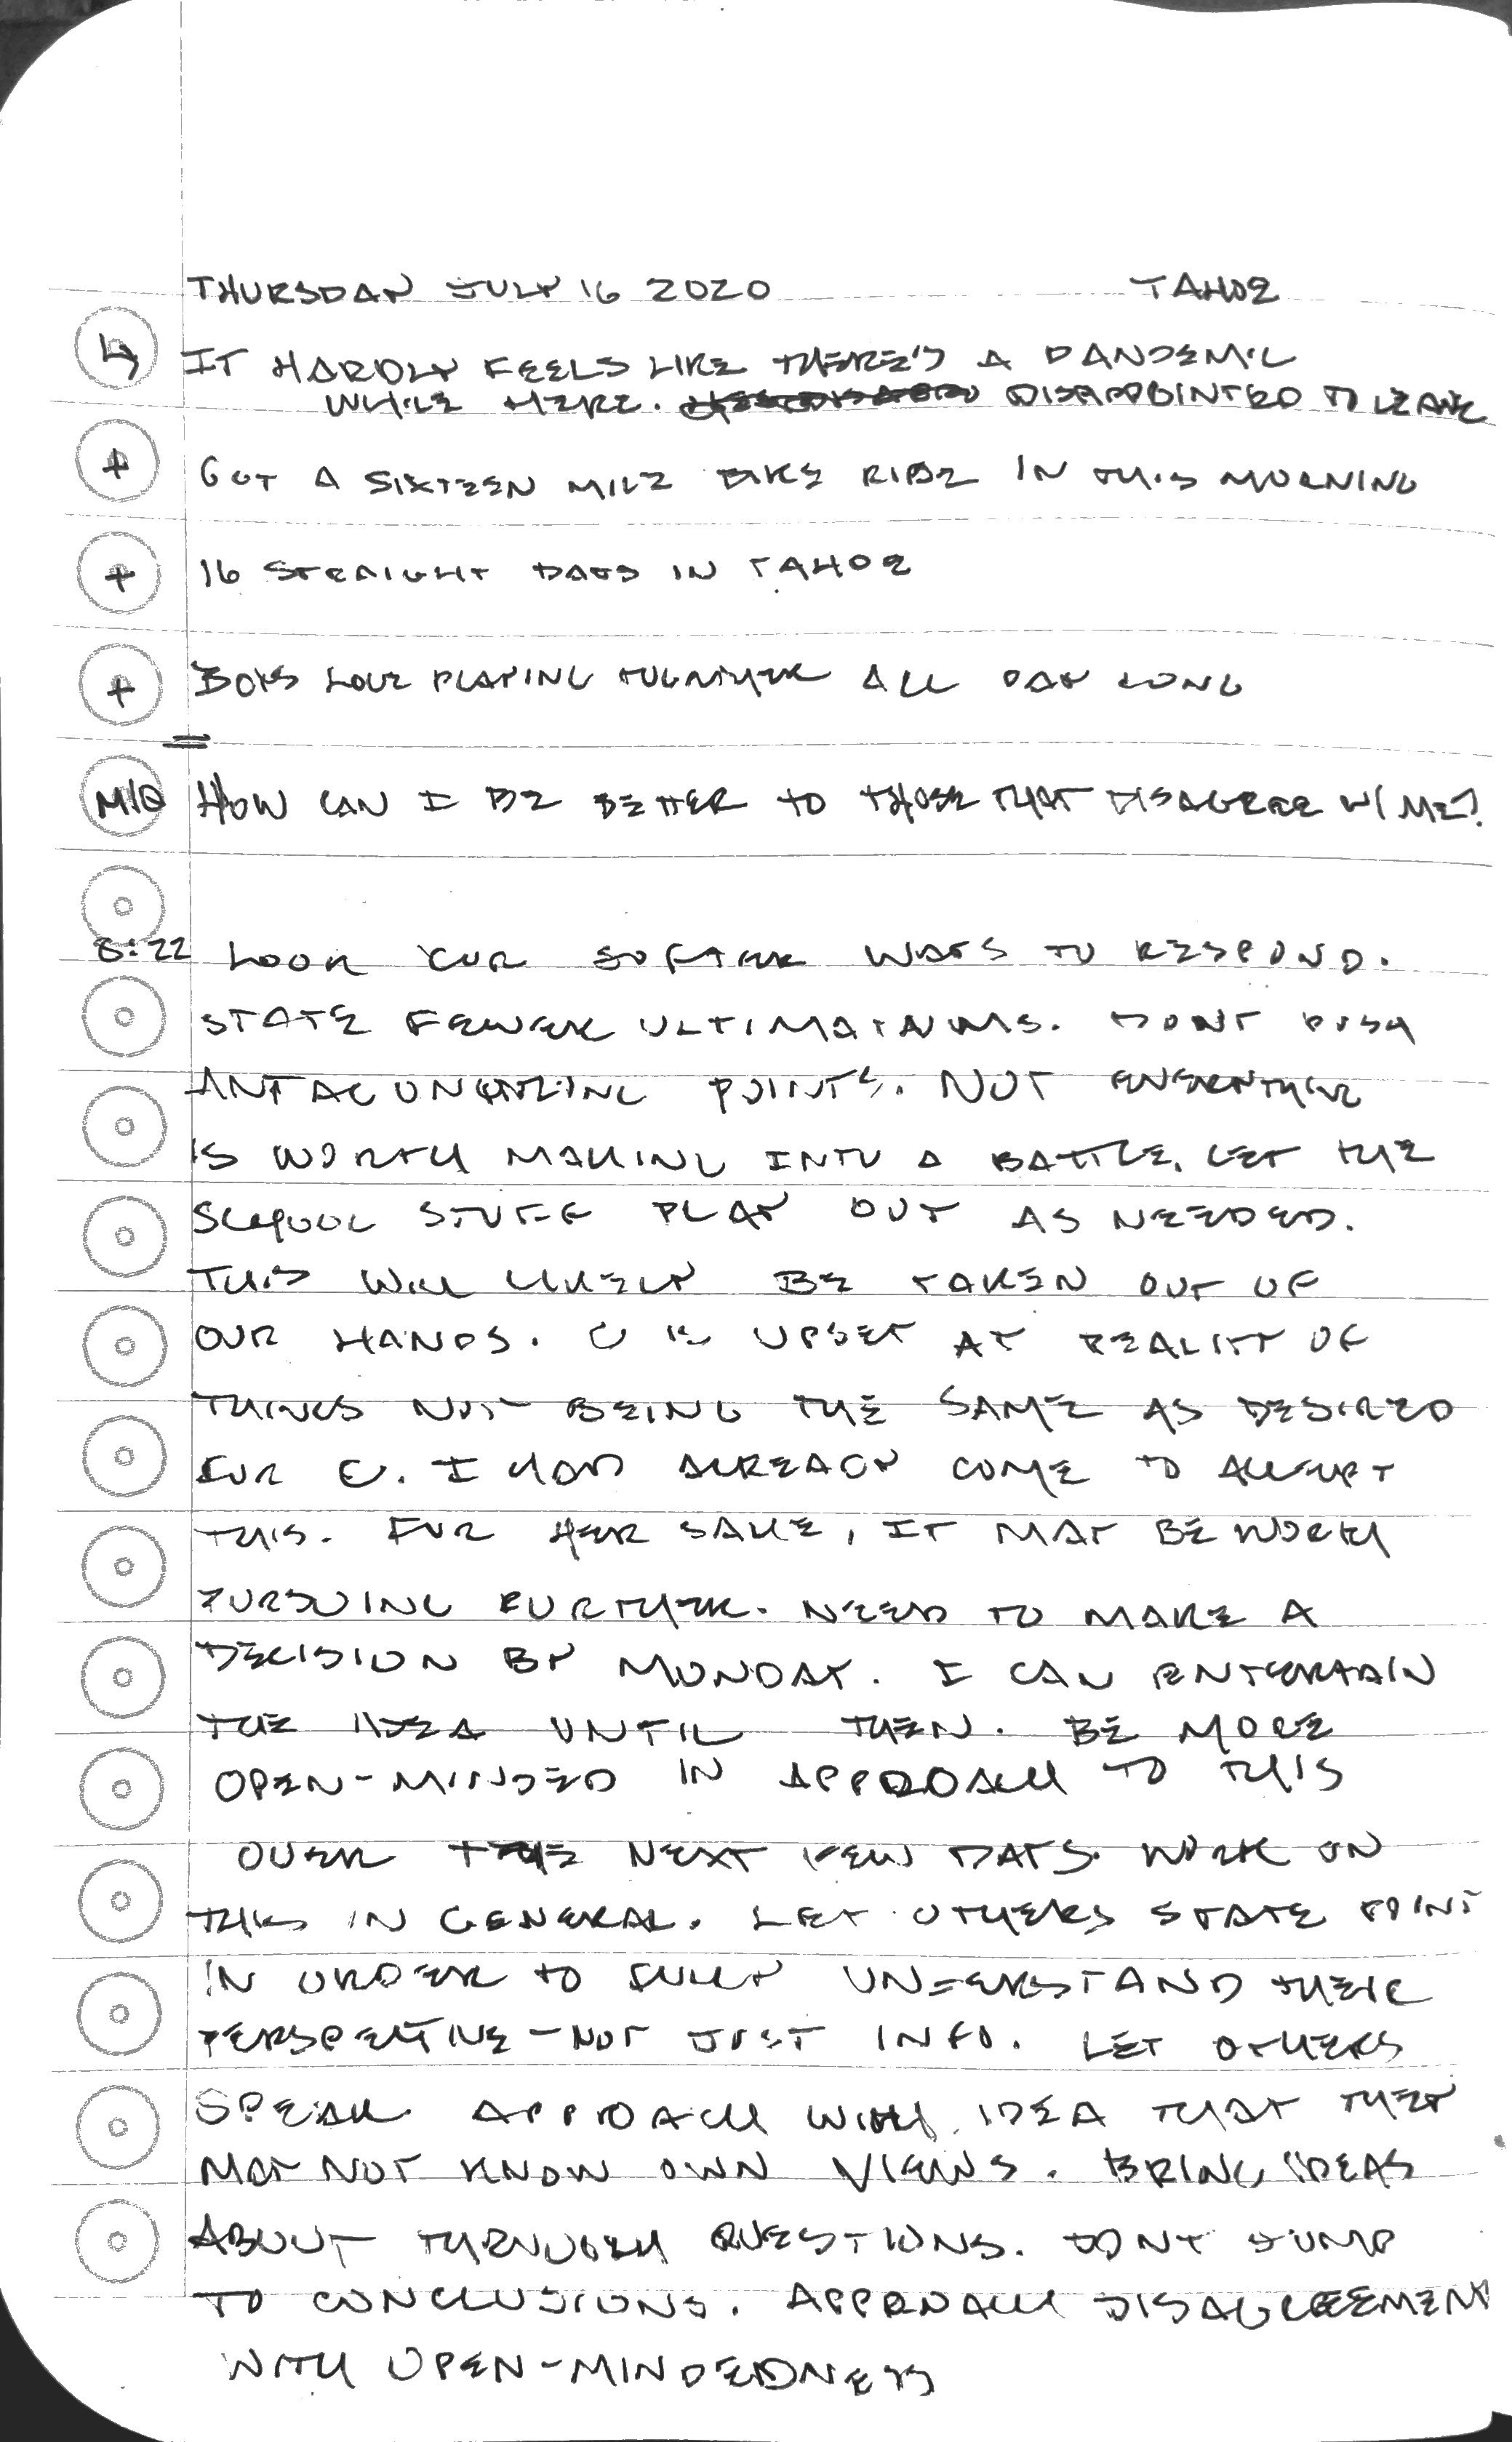 THURSDAY JULY 16 2020 TAHOE
↳ IT HARDLY FEELS LIKE THERE'S A PANDEMIC
WHILE HERE. DISAPPOINTED TO LEAVE
+ GOT A SIXTEEN MILE BIKE RIDE IN THIS MORNING
+ 16 STRAIGHT DAYS IN TAHOE
+ BOYS LOVE PLAYING TOGETHER ALL DAY LONG
M/Q HOW CAN I BE BETTER TO THOSE THAT DISAGREE W/ ME?
8:22 LOOK FOR SOFTER WAYS TO RESPOND.
STATE FEWER ULTIMATUMS. DONT PUSH
ANTAGONIZING POINTS. NOT EVERYTHING
IS WORTH MAKING INTO A BATTLE. LET THE
SCHOOL STUFF PLAY OUT AS NEEDED.
THIS WILL LIKELY BE TAKEN OUT OF
OUR HANDS. C IS UPSET AT REALITY OF
THINGS NOT BEING THE SAME AS DESIRED
FOR E. I HAD ALREADY COME TO ACCEPT
THIS. FOR HER SAKE, IT MAY BE WORTH
PURSUING FURTHER. NEED TO MAKE A
DECISION BY MONDAY. I CAN ENTERTAIN
THE IDEA UNTIL THEN. BE MORE
OPEN-MINDED IN APPROACH TO THIS
OVER THE NEXT FEW DAYS. WORK ON
THIS IN GENERAL. LET OTHERS STATE POINT
IN ORDER TO FULLY UNDERSTAND THEIR
PERSPECTIVE - NOT JUST INFO. LET OTHERS
SPEAK. APPROACH WITH IDEA THAT THEY
MAY NOT KNOW OWN VIEWS. BRING IDEAS
ABOUT THROUGH QUESTIONS. DONT JUMP
TO CONCLUSIONS. APPROACH DISAGREEMENT
WITH OPEN-MINDEDNESS